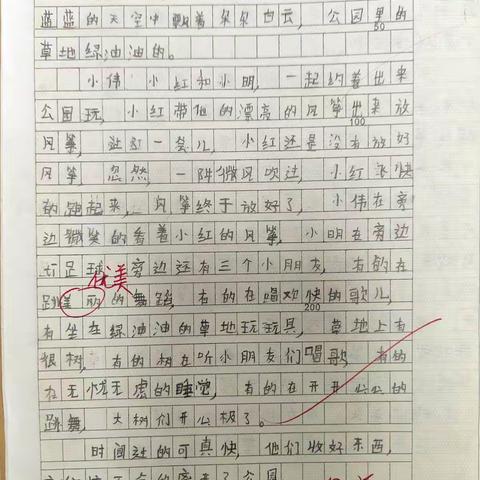 蓝蓝的天空中飘着朵朵白云，公园里的
50
草地绿油油的。
小伟 小红和小明，一起约着出来
公园玩，小红带他的漂亮的风筝出来放
100
风筝，过了一会儿，小红还是没有放好
风筝，忽然，一阵微风吹过，小红飞快
的跑起来，风筝终于放好了，小伟在旁
边微笑的看着小红的风筝，小明在旁边
玩足球，旁边还有三个小朋友，有的在
优美
跳美丽的舞蹈，有的在唱欢快的歌儿，
200
有坐在绿油油的草地玩玩具，草地上有
很树，有的树在听小朋友们唱歌，有的
在无忧无虑的睡觉，有的在开开心心的
跳舞，大树们开心极了。
时间过的可真快，他们收好东西，